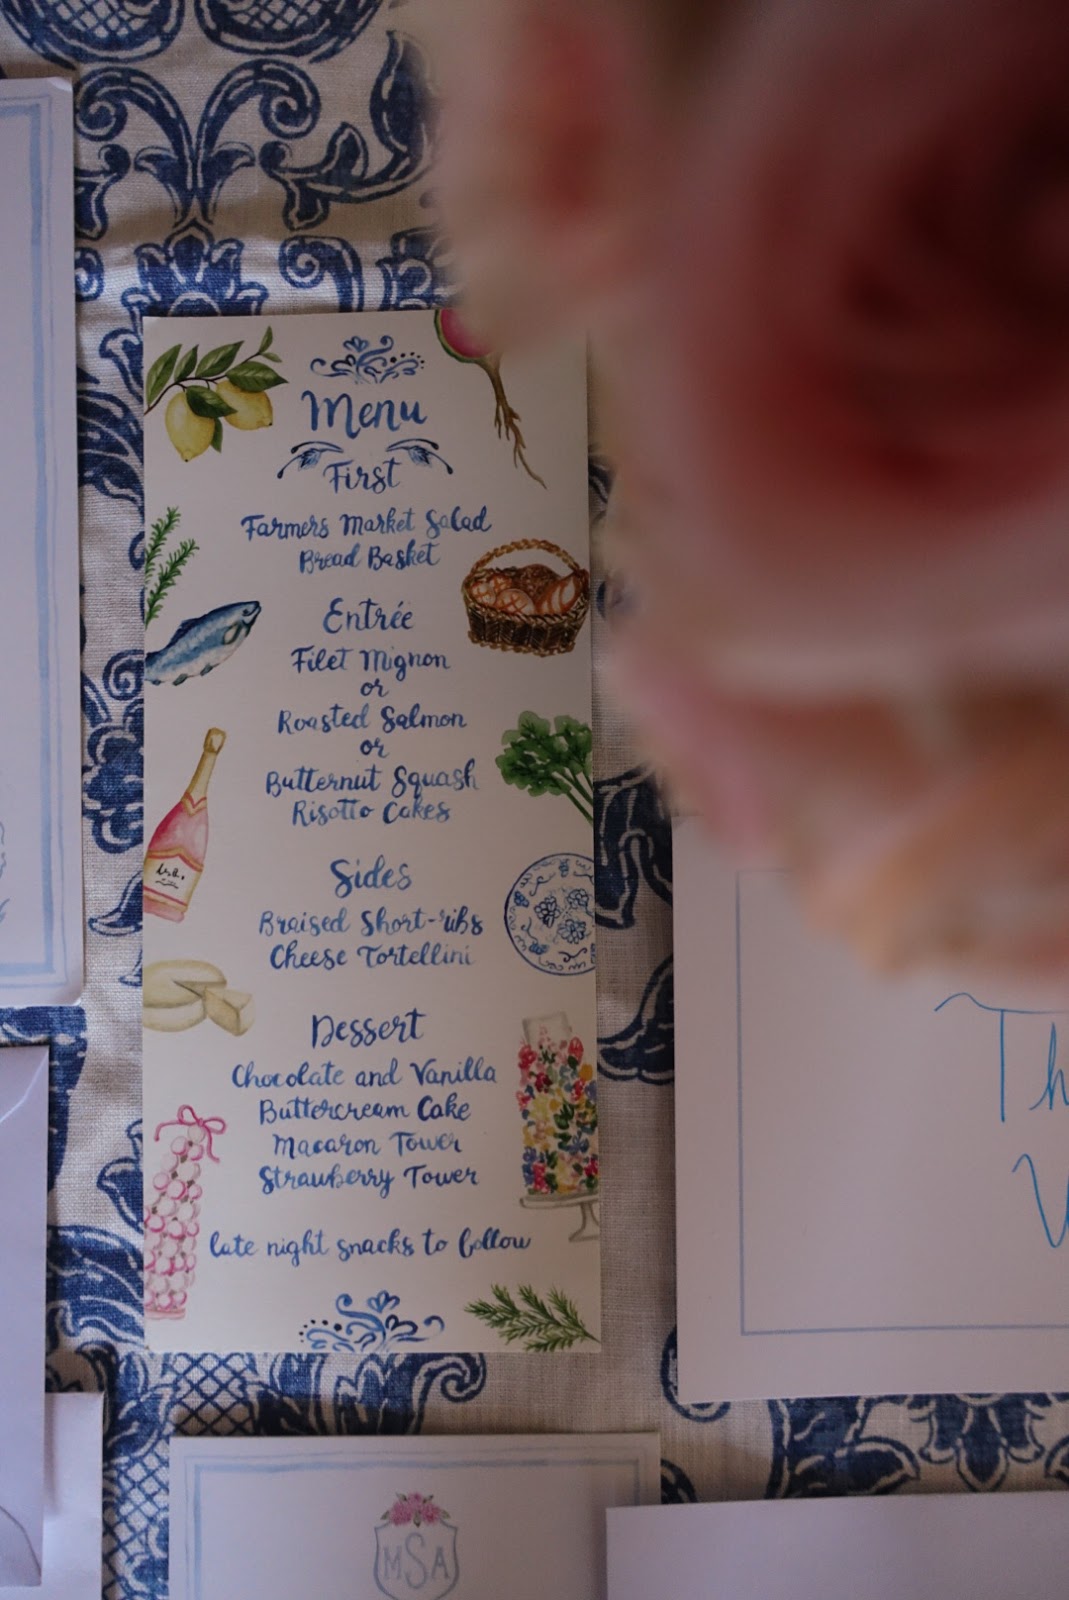 Menu
First
Farmers Market Salad
Bread Basket
Entrée
Filet Mignon
or
Roasted Salmon
or
Butternut Squash
Risotto Cakes
Sides
Braised Short-ribs
Cheese Tortellini
Dessert
Chocolate and Vanilla
Buttercream Cake
Macaron Tower
Strawberry Tower
late night snacks to follow
MSA